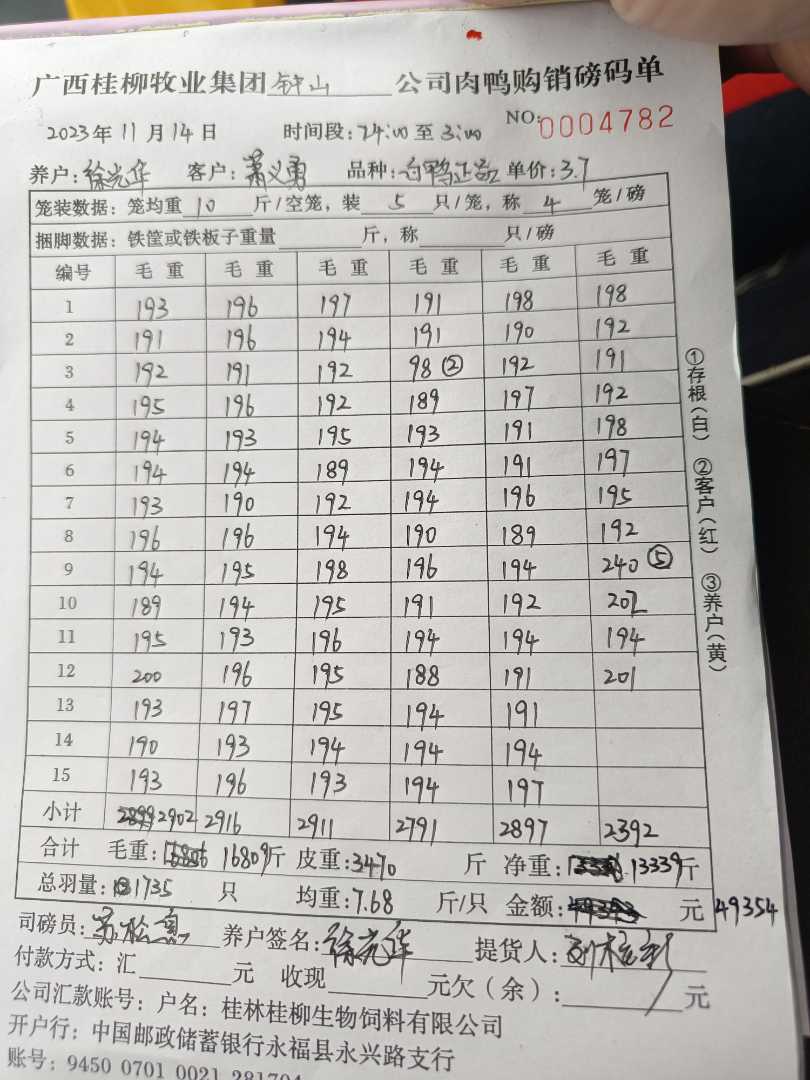 广西桂柳牧业集团钟山公司肉鸭购销磅码单
2023年11月14日 时间段:24:00至3:00 NO:0004782
养户:徐光华 客户:萧义勇 品种:白鸭正品 单价:3.7
笼装数据:笼均重10斤/空笼,装5只/笼,称4笼/磅
捆脚数据:铁筐或铁板子重量 斤,称 只/磅
编号 毛重 毛重 毛重 毛重 毛重 毛重
1 193 196 197 191 198 198
2 191 196 194 191 190 192
3 192 191 192 98② 192 191
4 195 196 192 189 197 192
5 194 193 195 193 191 198
6 194 194 189 194 191 197
7 193 190 192 194 196 195
8 196 196 194 190 189 192
9 194 195 198 196 194 240⑤
10 189 194 195 191 192 202
11 195 193 196 194 194 194
12 200 196 195 188 191 201
13 193 197 195 194 191
14 190 193 194 194 194
15 193 196 193 194 197
小计 2902 2916 2911 2791 2897 2392
合计 毛重:16809斤 皮重:3470斤 净重:13339斤
总羽量:1735只 均重:7.68斤/只 金额: 元 49354
司磅员: 养户签名:徐光华 提货人:
付款方式:汇 元 收现 元欠(余): 元
公司汇款账号:户名:桂林桂柳生物饲料有限公司
开户行:中国邮政储蓄银行永福县永兴路支行
账号:9450 0701 0021 281704
①存根(白) ②客户(红) ③养户(黄)